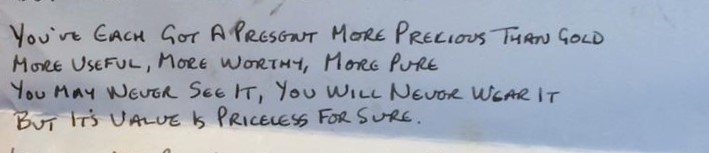 You've Each Got A Present More Precious Than Gold
More Useful, More Worthy, More Pure
You May Never See It, You Will Never Wear It
But It's Value Is Priceless For Sure.